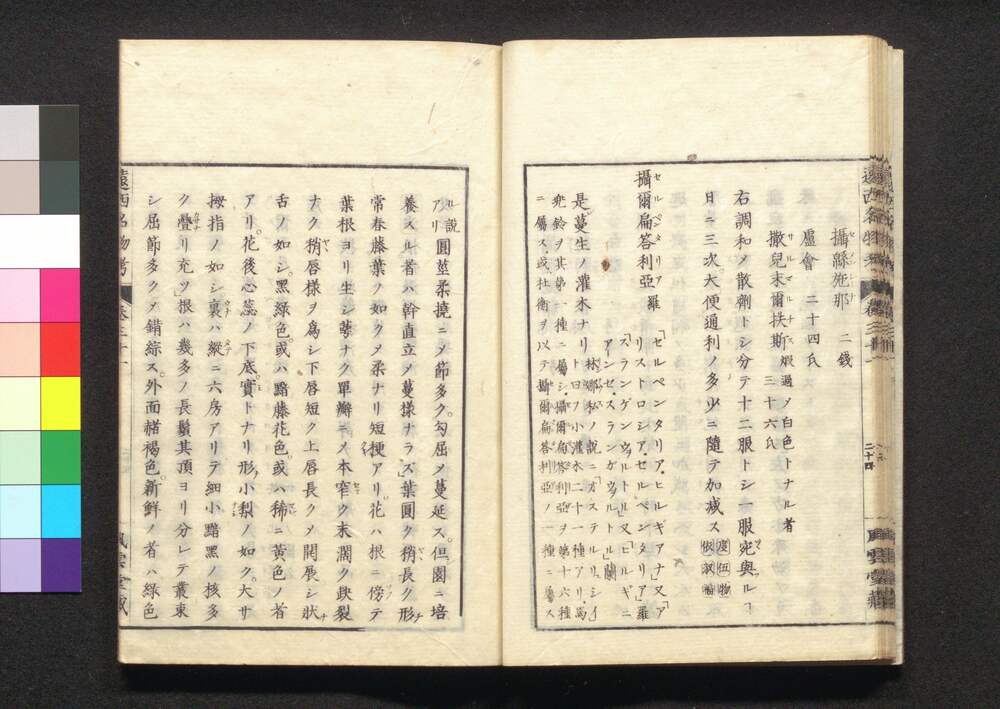 攝綿施那 二錢
蘆會 二十四氏
撒兒末爾扶斯 煆過メ白色トナル者 三十六氏
右調和メ散劑トシ分テ十二服トシ一服宛與ルコ
日ニ三次大便通利ノ多少ニ隨テ加減ス
攝爾扁答利亞 羅「セルペンタリア・ヒルギアアナ」又「ア
リストロシア・セルペンタリア」羅
「スランゲンウヲルトル」又「ヒルギニ
アンセ・スランゲウヲルトル」蘭
是蔓生ノ灌木ナリ 林娜私ノ説ニ「ガステルリシイ」
トロフ小灌木二十一種アリ馬
兜鈴ヲ其第一種ニ屬シ攝爾扁答利亞ヲ第十六種
ニ屬ス或杜衡ヲ以テ攝爾扁答利亞ノ一種ニ屬ス
ル説アリ 圓莖柔撓ニメ節多ク勾屈メ蔓延ス但園ニ培
養スル者ハ幹直立メ蔓樣ナラズ葉圓ク稍長ク形
常春藤葉ノ如クメ柔ナリ短梗アリ花ハ根ニ傍テ
葉根ヨリ生シ蕚ナク單瓣ニメ本窄ク末濶ク殴裂
ナク稍唇樣ヲ爲シ下唇短ク上唇長クメ開展シ状
舌ノ如シ黒緑色或ハ黯藤花色或ハ稀ニ黄色ノ者
アリ花後心蕊ノ下底實トナリ形小梨ノ如ク大サ
拇指ノ如シ裏ハ縱ニ六房アリテ細小黯黒ノ核多
ク疊リ充ツ根ハ幾多ノ長鬚其頂ヨリ分レテ叢束
シ屈節多クメ錯綜ス外面赭褐色新鮮ノ者ハ緑色
遠西名物考
卷三十一
風雲堂藏